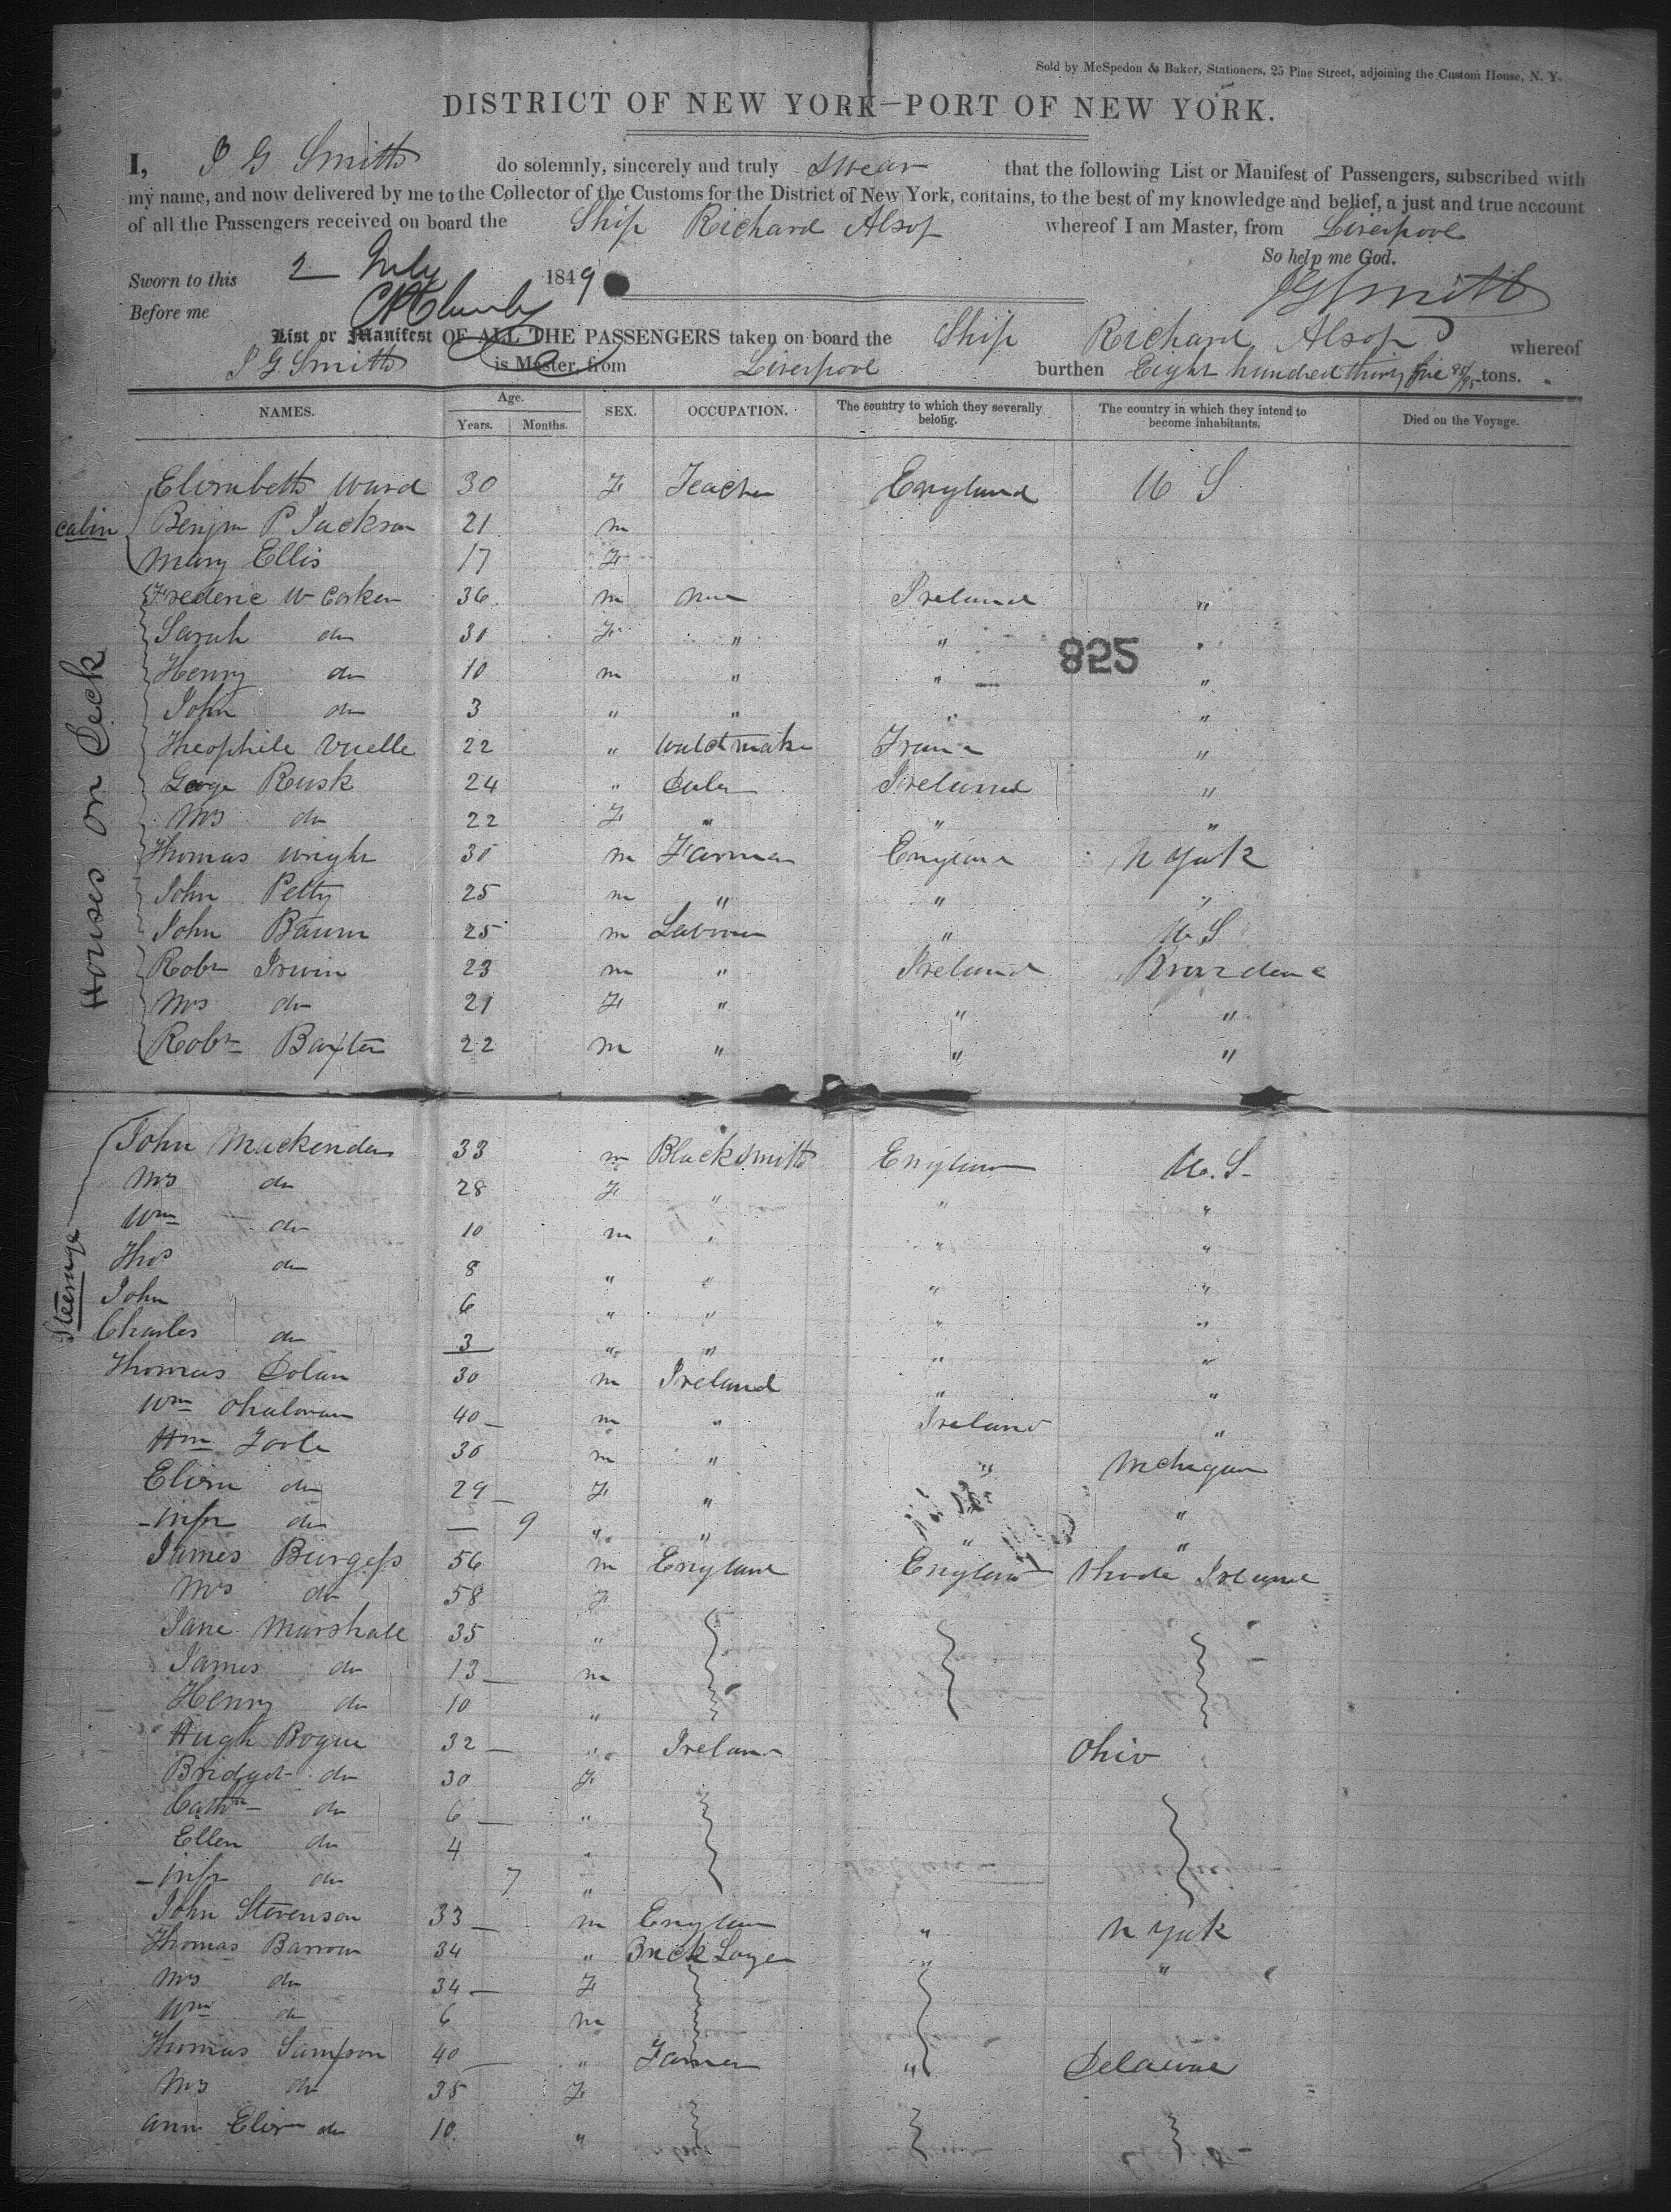 Sold by McSpedon & Baker, Stationers, 25 Pine Street, adjoining the Custom House, N. Y.
DISTRICT OF NEW YORK—PORT OF NEW YORK.
I, J G Smith do solemnly, sincerely and truly swear that the following List or Manifest of Passengers, subscribed with
my name, and now delivered by me to the Collector of the Customs for the District of New York, contains, to the best of my knowledge and belief, a just and true account
of all the Passengers received on board the Ship Richard Alsop whereof I am Master, from Liverpool
So help me God.
Sworn to this 2 July 1849
J G Smith
Before me
List or Manifest OF ALL THE PASSENGERS taken on board the Ship Richard Alsop whereof
J G Smith is Master, from Liverpool burthen Eight hundred thirty five tons.
NAMES. Age. Years. Months. SEX. OCCUPATION. The country to which they severally belong. The country in which they intend to become inhabitants. Died on the Voyage.
cabin
Elizabeth Ward 30 F Teacher England U S
Benjm P Jackson 21 m
Mary Ellis 17 F
Houses on Deck
Frederic W 36 m Ireland "
Sarah do 30 F " " "
825
Henry do 10 m " " "
John do 3 " " " "
Theophile Vuelle 22 " watchmaker France "
George Rusk 24 " Ireland "
Mrs do 22 F " " "
Thomas Wright 30 m Farmer England N York
John Petty 25 m " " "
John Baum 25 m Labourer " U S
Robt Irwin 23 m " Ireland Providence
Mrs do 21 F " " "
Robt Baxter 22 m " " "
Steerage
John Mackender 33 m Blacksmith England U.S.
Mrs do 28 F " " "
Wm do 10 m " " "
Thos do 8 " " " "
John 6 " " " "
Charles do 3 " " " "
Thomas Dolan 30 m Ireland " "
Wm 40 m " Ireland "
Wm Toole 30 m " " Michigan
Eliza do 29 F " " "
infn do 9 " " " "
James Burgess 56 m England England Rhode Island
Mrs do 58 F
Jane Marshall 35 "
James do 13 m
Henry do 10 "
Hugh Bogue 32 " Ireland Ohio
Bridget do 30 F
Cathn do 6 "
Ellen do 4 "
infn do 7 "
John Stevenson 33 m England " N York
Thomas Barrow 34 " Brick Layer " "
Mrs do 34 F
Wm do 6 m
Thomas Sampson 40 " Farmer " Delaware
Mrs do 35 F
Ann Eliza do 10 "